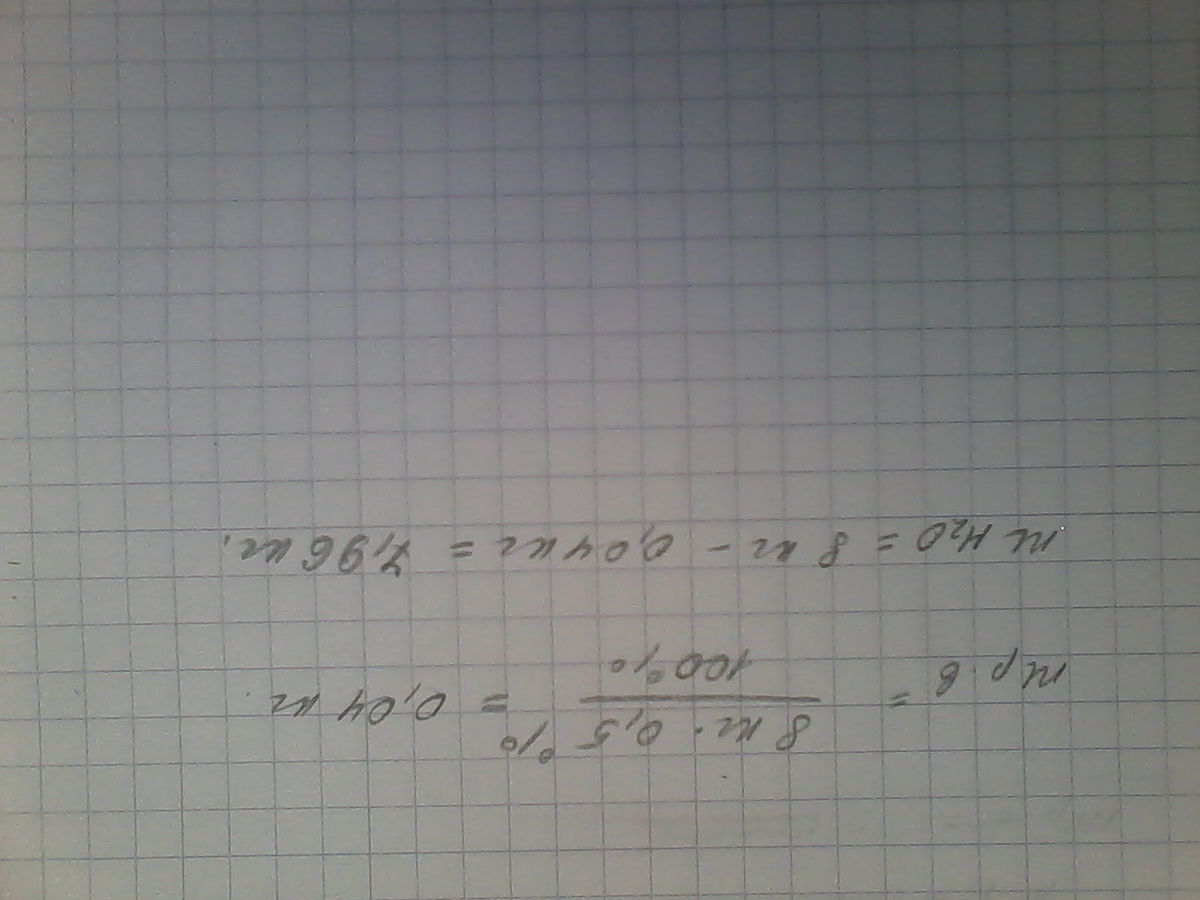 m р.в = 8 кг · 0,5 % / 100% = 0,04 кг
m H₂O = 8 кг - 0,04 кг = 7,96 кг.